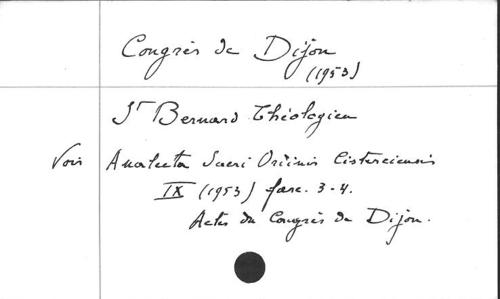 Congrès de Dijon
(1953)
St Bernard Théologien
Voir Analecta Sacri Ordinis Cisterciensis
IX (1953) fasc. 3-4.
Actes du Congrès de Dijon.